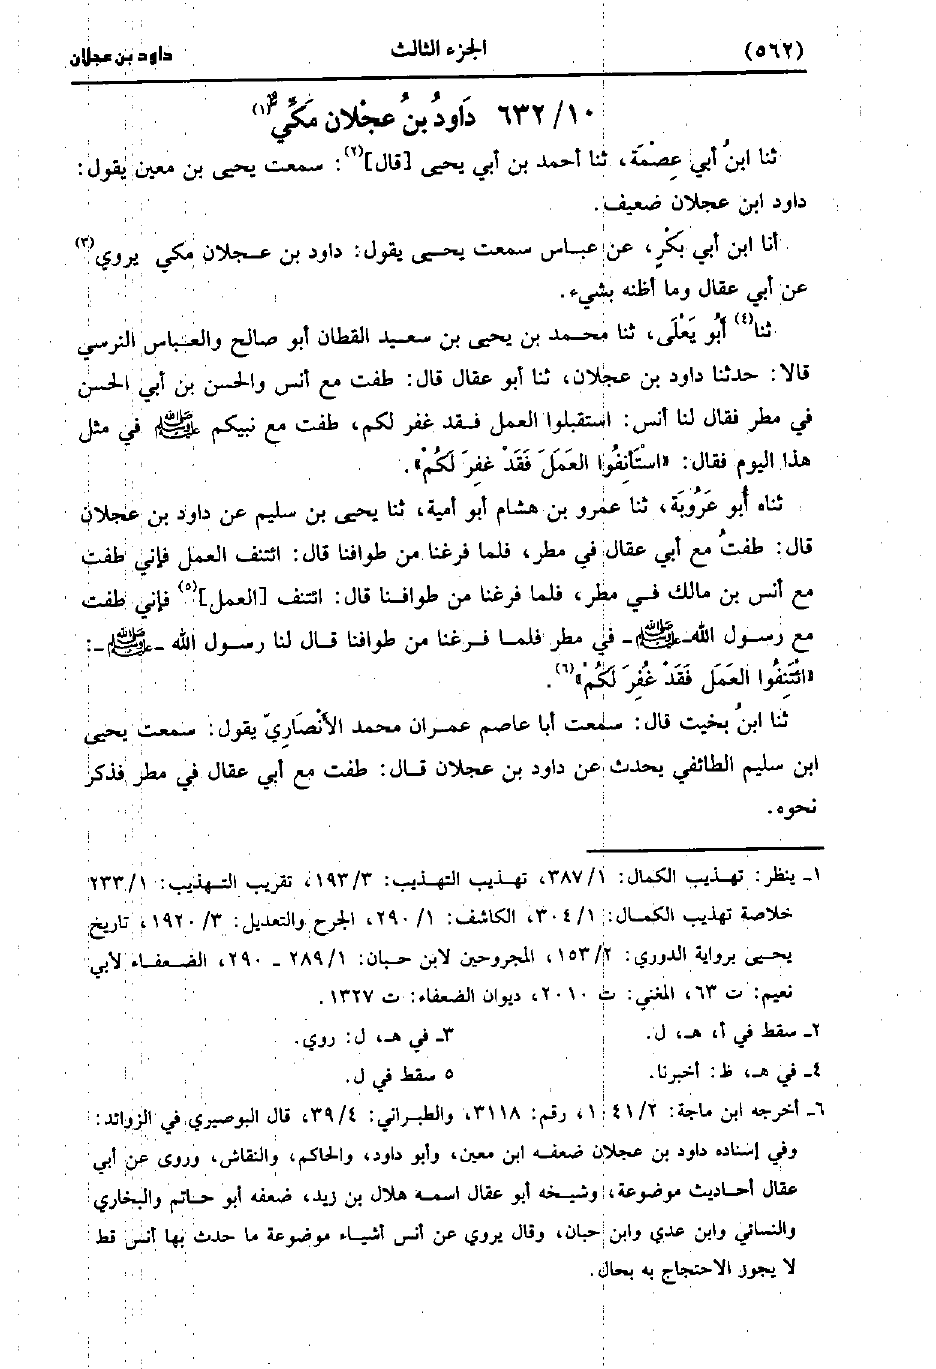 (٥٦٢) الجزء الثالث داود بن عجلان
٦٣٢/١٠ دَاودُ بنُ عجْلان مَكِّي(١)
ثنا ابنُ أبي عِصْمَة، ثنا أحمد بن أبي يحيى [قال](٢): سمعت يحيى بن معين يقول:
داود ابن عجلان ضعيف.
أنا ابن أبي بَكْرٍ، عن عباس سمعت يحيى يقول: داود بن عجلان مكي يروي(٣)
عن أبي عقال وما أظنه بشيء.
ثنا(٤) أَبُو يَعْلَى، ثنا محمد بن يحيى بن سعيد القطان أبو صالح والعباس النرسي
قالا: حدثنا داود بن عجلان، ثنا أبو عقال قال: طفت مع أنس والحسن بن أبي الحسن
في مطر فقال لنا أنس: استقبلوا العمل فقد غفر لكم، طفت مع نبيكم ﷺ في مثل
هذا اليوم فقال: «اسْتَأْنِفُوا العَمَلَ فَقَدْ غفِرَ لَكُمْ».
ثناه أَبو عَرُوبَة، ثنا عمرو بن هشام أبو أمية، ثنا يحيى بن سليم عن داود بن عجلان
قال: طفتُ مع أبي عقال في مطر، فلما فرغنا من طوافنا قال: ائتنف العمل فإني طفت
مع أنس بن مالك في مطر، فلما فرغنا من طوافنا قال: ائتنف [العمل](٥) فإني طفت
مع رسول الله ـ ﷺ ـ في مطر فلما فرغنا من طوافنا قال لنا رسول الله ـ ﷺ ـ:
«ائْتَنِفُوا العَمَل فَقَدْ غُفِرَ لَكُمْ»(٦).
ثنا ابنُ بخيت قال: سمعت أبا عاصم عمران محمد الأَنْصَارِيّ يقول: سمعت يحيى
ابن سليم الطائفي يحدث عن داود بن عجلان قال: طفت مع أبي عقال في مطر فذكر
نحوه.
١ـ ينظر: تهذيب الكمال: ٣٨٧/١، تهذيب التهذيب: ١٩٣/٣، تقريب التهذيب: ٢٣٣/١
خلاصة تهذيب الكمال: ٣٠٤/١، الكاشف: ٢٩٠/١، الجرح والتعديل: ١٩٢٠/٣، تاريخ
يحيى برواية الدوري: ١٥٣/٢، المجروحين لابن حبان: ٢٨٩/١ ـ ٢٩٠، الضعفاء لأبي
نعيم: ت ٦٣، المغني: ت ٢٠١٠، ديوان الضعفاء: ت ١٣٢٧.
٢ـ سقط في أ، هـ، ل. ٣ـ في هـ، ل: روي.
٤ـ في هـ، ظ: أخبرنا. ٥ سقط في ل.
٦ـ أخرجه ابن ماجة: ١٠٤١/٢، رقم: ٣١١٨، والطبراني: ٣٩/٤، قال البوصيري في الزوائد:
وفي إسناده داود بن عجلان ضعفه ابن معين، وأبو داود، والحاكم، والنقاش، وروى عن أبي
عقال أحاديث موضوعة، وشيخه أبو عقال اسمه هلال بن زيد، ضعفه أبو حاتم والبخاري
والنسائي وابن عدي وابن حبان، وقال يروي عن أنس أشياء موضوعة ما حدث بها أنس قط
لا يجوز الاحتجاج به بحال.